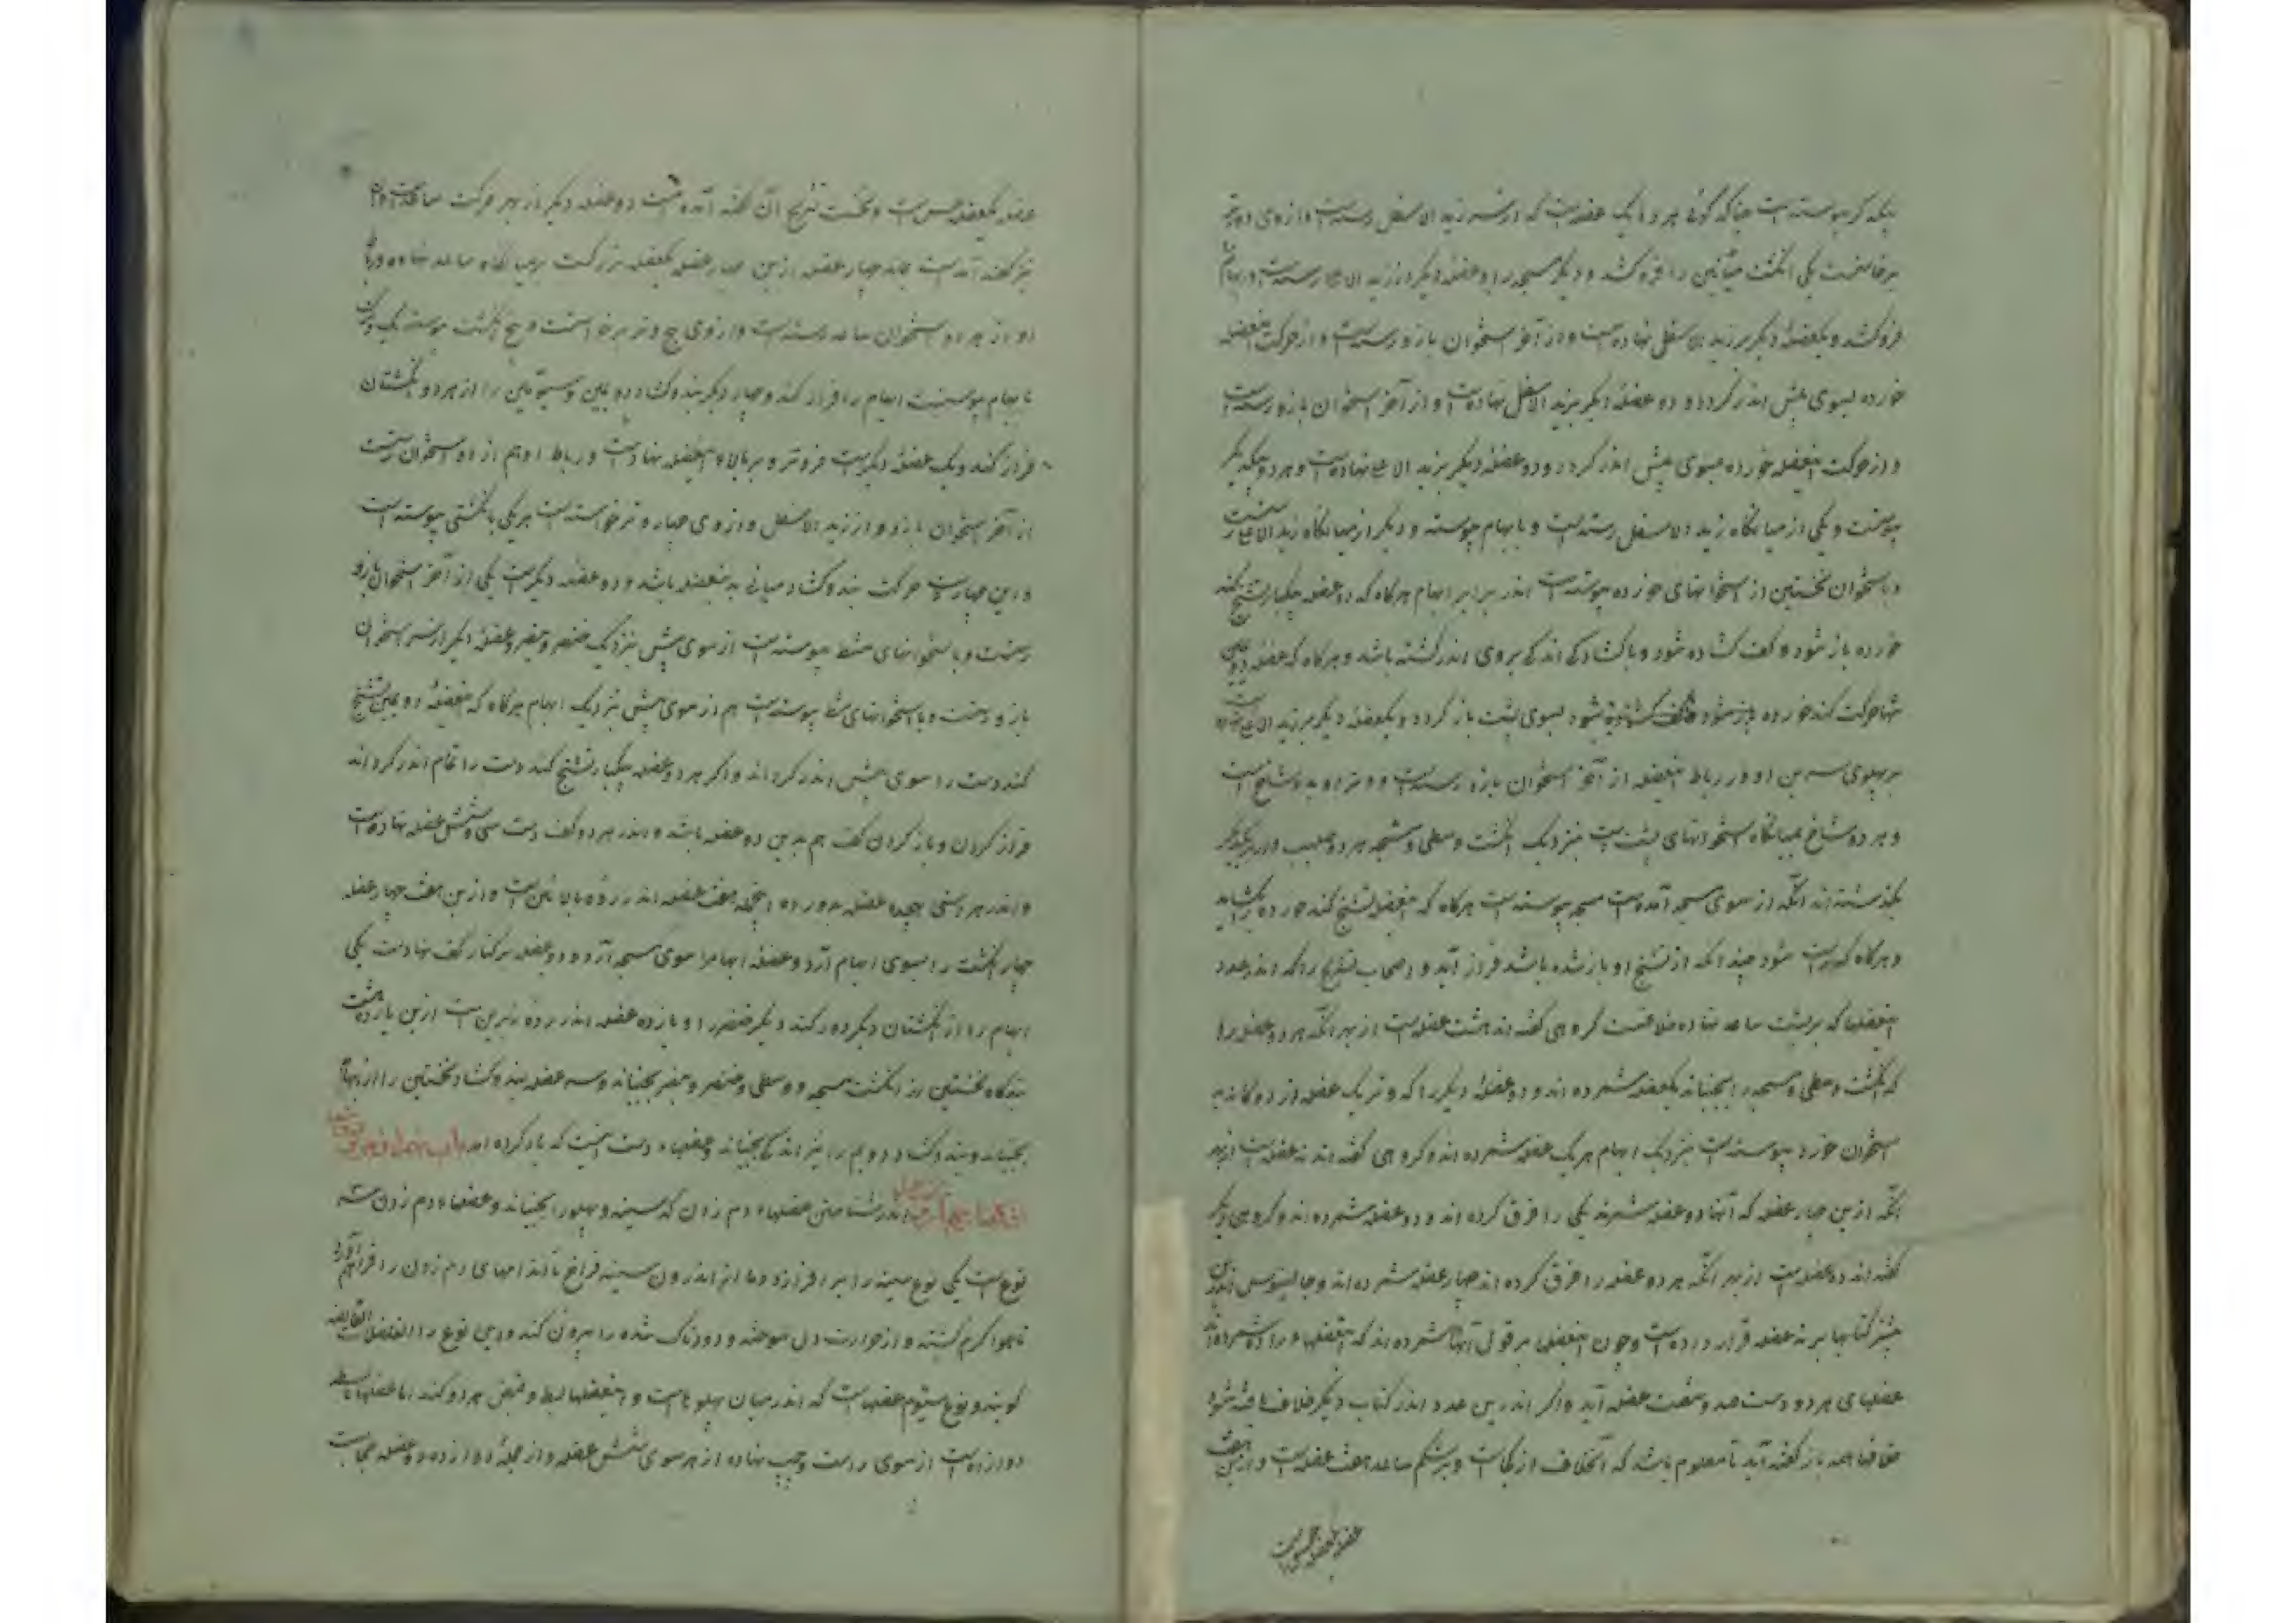 بیکدیگر پیوسته است چنانکه گوئی هر دو یک عضله است که از سر زند الاسفل رسته است و از وی دو وتر
برخاستست یکی انگشت میانگین را فرو کشد و دیگر مسبحه را و عضلهٔ دیگر از زند الاعلی رسته است و ابهام
فرو کشد و یکعضلهٔ دیگر بر زند الاسفل نهاده است و از آخر استخوان بازو رسته است و از حرکت اینعضله
خورده بسوی پیش اندر گردد و دو عضلهٔ دیگر بزند الاسفل نهاده است و از آخر استخوان بازو رسته است
و از حرکت اینعضله خورده بسوی پیش اندر گردد و دو عضلهٔ دیگر بزند الاعلی نهاده است و هر دو بیکدیگر
پیوست و یکی از میانگاه زند الاسفل رسته است و با بهام پیوسته و دیگر از میانگاه زند الاعلی رستست
و باستخوان نخستین از استخوانهای خورده پیوسته است اندر برابر ابهام هرگاه که دو عضله بیکبار تشنج کند
خورده باز شود و کف گشاده شود و با گشادگی اندکی بروی اندر گشته باشد و هرگاه که عضله دومین
تنها حرکت کند خورده باز شود و کف گشاده شود بسوی پشت باز گردد و یکعضلهٔ دیگر بر زند الاعلی
بر پهلوی او و رباط اینعضله از آخر استخوان بازو رسته است و وتر او بدو شاخ است
و هر دو شاخ بمیانگاه استخوانهای پشت است نزدیک انگشت وسطی و مسبحه هر دو
بگذشته اند آنکه از سوی مسبحه آمده است بمسبحه پیوسته است هرگاه که اینعضله تشنج کند خورده بگشاید
و هرگاه که شود چندانکه از تشنج او باز شده باشد فراز آید و اصحاب تشریح را که اندر عدد
اینعضلها که بر پشت ساعد نهاده خلافست گروهی گفته اند هشت عضله است از بهر آنکه هر دو عضله را
که انگشت وسطی و مسبحه را بجنباند یکعضله شمرده اند و دو عضلهٔ دیگر را که وتر یک عضله از دوگانه بر
استخوان خورد پیوسته است نزدیک ابهام هر یک عضله شمرده اند و گروهی گفته اند نه عضله است از بهر
آنکه ازین چهار عضله که آنها دو عضله شمرند یکی را فرق کرده اند و دو عضله شمرده اند و گروهی دیگر
گفته اند ده عضله است از بهر آنکه هر دو عضله را فرق کرده اند چهار عضله شمرده اند و جالینوس اندرین
بیشتر کتابها بر نه عضله قرار داده است و چون اینعضلها بر قول آنها شمرده اند که اینعضلهاء را ده شمرده اند
عضلهای هر دو دست صد و شصت عضله آید و اگر اندرین عدد اندر کتاب دیگر خلاف یافته شود
خلافها همه باز گفته آید تا معلوم باشد که آنخلاف از کجاست و بر شکم ساعد هفت عضله است و ازین هفت
عضله یکعضله حس است
عضله یکعضله حس است و نخست تشریح آن گفته آمده است و دو عضله دیگر از بهر حرکت ساعد است و
نیز گفته آمده است ماند چهار عضله ازین چهار عضله یکعضله بزرگست بر میانگاه ساعد نهاده و
او از هر دو استخوان ساعد رسته است و از وی پنج وتر برخاستست و پنج انگشت پیوسته یک وتر
با بهام پیوستست ابهام را فراز کند و چهار دیگر بند و گشاد دومین و سیومین را از هر دو انگشتان
فراز کند و یک عضله دیگر است فروتر و بر بالاء اینعضله نهاده است و رباط او هم از دو استخوان رستست
از آخر استخوان بازو و از زند الاسفل و از وی چهار وتر برخواسته است هر یکی بانگشتی پیوسته است
و این چهار است حرکت بند و گشاد میانی بدینعضله باشد و دو عضله دیگر است یکی از آخر استخوان بازو
رستست و باستخوانهای مشط پیوسته است از سوی پیش نزدیک خنصر و بنصر و عضلهٔ دیگر از سر استخوان
بازو رستست و با استخوانهای مشط پیوسته است هم از سوی پیش نزدیک ابهام هرگاه که اینعضلهٔ دومین تشنج
کند دست را سوی پیش اندر گرداند و اگر هر دو عضله بیکبار تشنج کند دست را تمام اندر گرداند
فراز کردن و باز کردن کف هم بدین دو عضله باشد و اندر هر دو کف دست سی و شش عضله نهاده است
و اندر هر دستی هیجده عضله بدو رده از آنجمله هفت عضله اندر ردهٔ بالائین است و ازین هفت چهار عضله
چهار انگشت را بسوی ابهام آرد و عضلهٔ ابهام را سوی مسبحه آرد و دو عضله بر کنار کف نهاده است یکی
ابهام را از انگشتان دیگر دور کند و دیگر خنصر را و یازده عضله اندر ردهٔ زیرین است ازین یازده هشت
بندگاه نخستین از انگشت مسبحه و وسطی و خنصر و بنصر بجنباند و سه عضله بند و گشاد نخستین را از ابهام
بجنباند و بند و گشاد دویم را نیز اندکی بجنباند و عضلهاء دست اینست که یاد کرده آمد باب چهاردهم
اندر شناختن عضلهاء دم زدن که سینه و پهلو را بجنباند و عضلهاء دم زدن سه
نوع است یکی نوع سینه را بر افرازد و ما از اندرون سینه فراخ تا اندامهای دم زدن را فراهم آورد
تا هوا گرم گشته و از حرارت دل سوخته و دودناک شده را بیرون کند و این نوع را العضلات القابضه
گویند و نوع سیوم عضلهاست که اندر میان پهلوهاست و اینعضلها بسط و قبض هر دو کند اما عضلهاء باسطه
دوازده است از سوی راست و چپ نهاده از هر سوی شش عضله و از جملهٔ دوازده دو عضله حجاب است